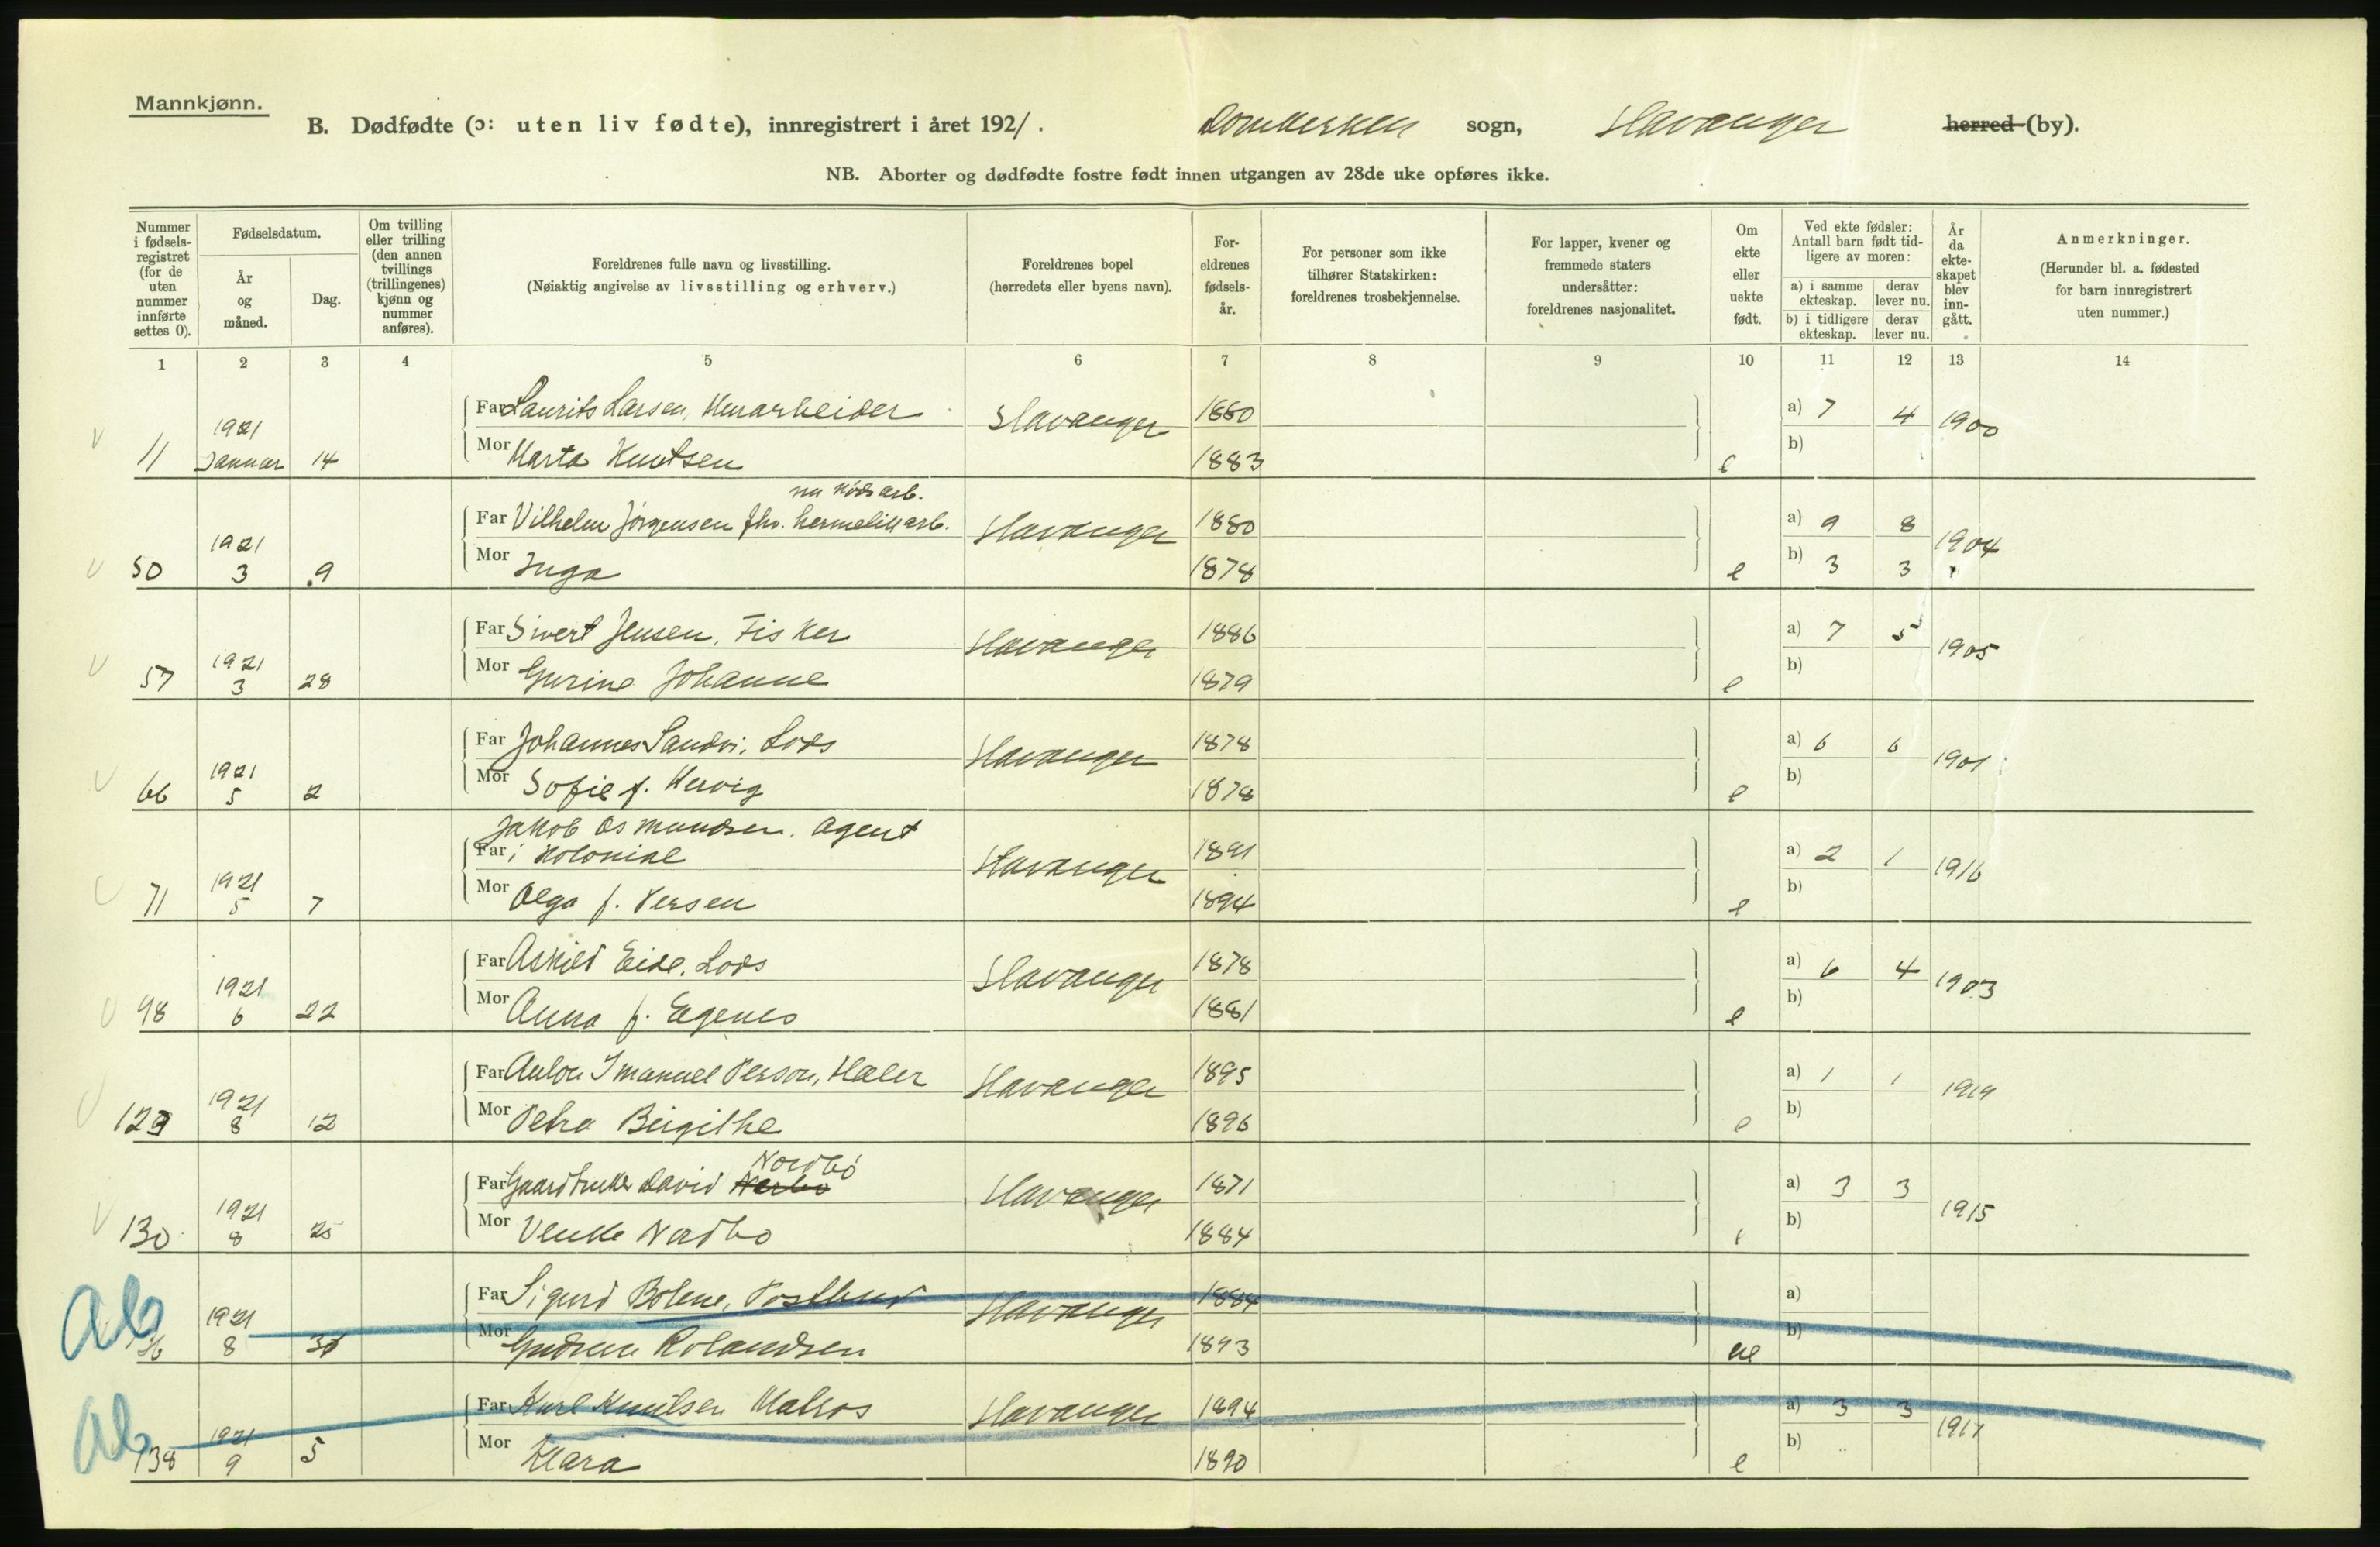 Mannkjønn.
B. Dødfødte (ɔ: uten liv fødte), innregistrert i året 1921. Domkirken sogn, Stavanger herred (by).
NB. Aborter og dødfødte fostre født innen utgangen av 28de uke opføres ikke.
Nummer i fødsels-registret (for de uten nummer innførte settes 0).
Fødselsdatum.
År og måned.
Dag.
Om tvilling eller trilling (den annen tvillings (trillingenes) kjønn og nummer anføres).
Foreldrenes fulle navn og livsstilling.
(Nøiaktig angivelse av livsstilling og erhverv.)
Foreldrenes bopel
(herredets eller byens navn).
For-eldrenes fødsels-år.
For personer som ikke tilhører Statskirken: foreldrenes trosbekjennelse.
For lapper, kvener og fremmede staters undersåtter: foreldrenes nasjonalitet.
Om ekte eller uekte født.
Ved ekte fødsler: Antall barn født tid-ligere av moren:
a) i samme ekteskap. derav lever nu.
b) i tidligere ekteskap. derav lever nu.
År da ekte-skapet blev inn-gått.
Anmerkninger.
(Herunder bl. a. fødested for barn innregistrert uten nummer.)
1 2 3 4 5 6 7 8 9 10 11 12 13 14
Far Laurits Larsen, Murarbeider Stavanger 1880 a) 7 4 1900
11 1921 Januar 14 Mor Marta Knutsen 1883 e b)
nu nødsarb.
Far Vilhelm Jörgensen fhv. hermetikkarb. Stavanger 1880 a) 9 8 1904
50 1921 3 9 Mor Inga 1878 e b) 3 3
Far Sivert Jensen, Fisker Stavanger 1886 a) 7 5 1905
57 1921 3 28 Mor Gurine Johanne 1879 e b)
Far Johannes Sandvi, Lods Stavanger 1878 a) 6 6 1901
66 1921 5 2 Mor Sofie f. Kervig 1878 e b)
Jakob Osmundsen. Agent
Far i Kolonial Stavanger 1891 a) 2 1 1916
71 1921 5 7 Mor Olga f. Persen 1894 e b)
Far Askild Eide, Lods Stavanger 1878 a) 6 4 1903
98 1921 6 22 Mor Anna f. Egenes 1881 e b)
Far Anton Imanuel Person, Maler Stavanger 1895 a) 1 1 1919
123 1921 8 12 Mor Petra Birgithe 1896 e b)
Nordbö
Far Gaardbruker David Nerbö Stavanger 1871 a) 3 3 1915
130 1921 8 25 Mor Venke Nordbo 1884 e b)
Ab
Far Sigurd Bolene, Postbud Stavanger 1884 a)
1921 8 Mor Gudrun Rolandsen 1893 ue b)
Ab
Far Karl Knutsen Matros Stavanger 1894 a) 3 3 1917
138 1921 9 5 Mor Klara 1890 e b)